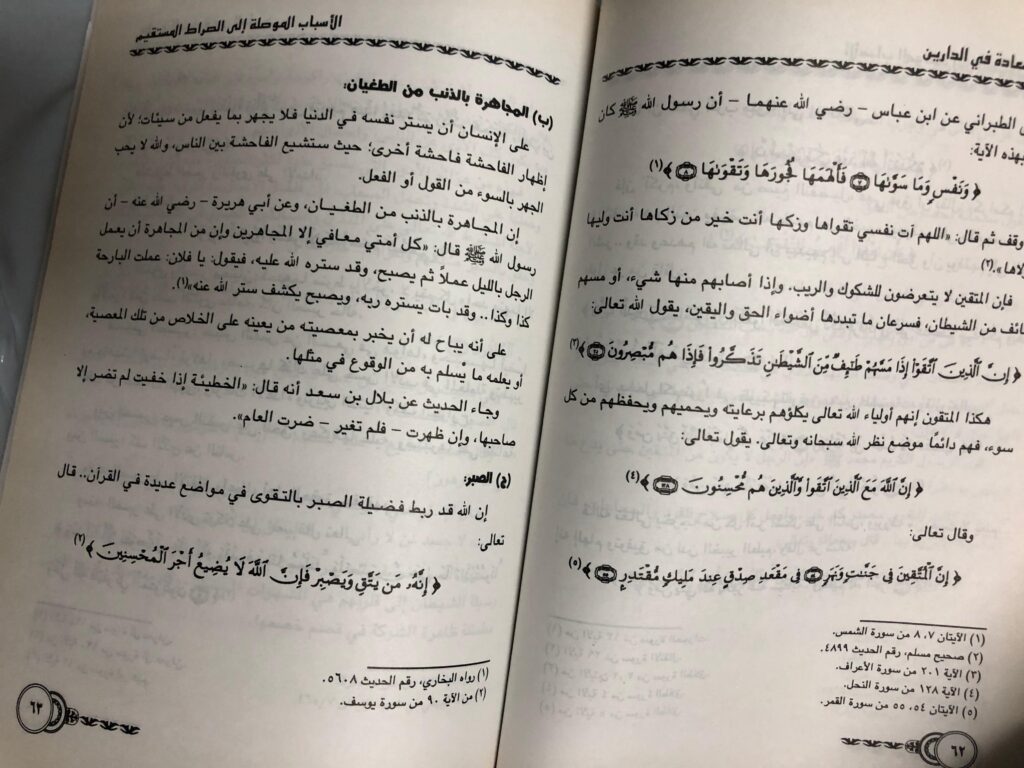 عادة في الدارين
الطبراني عن ابن عباس - رضي الله عنهما - أن رسول الله ﷺ كان
بهذه الآية:
﴿ وَنَفْسٍ وَمَا سَوَّىٰهَا ۝٧ فَأَلْهَمَهَا فُجُورَهَا وَتَقْوَىٰهَا ۝٨ ﴾(١)
وقف ثم قال: «اللهم آت نفسي تقواها وزكها أنت خير من زكاها أنت وليها
(٢)
فإن المتقين لا يتعرضون للشكوك والريب. وإذا أصابهم منها شيء، أو مسهم
ائف من الشيطان، فسرعان ما تبددها أضواء الحق واليقين، يقول الله تعالى:
﴿ إِنَّ الَّذِينَ اتَّقَوْا إِذَا مَسَّهُمْ طَٰٓئِفٌ مِّنَ الشَّيْطَٰنِ تَذَكَّرُوا فَإِذَا هُم مُّبْصِرُونَ ۝٢٠١ ﴾(٣)
هكذا المتقون إنهم أولياء الله تعالى يكلؤهم برعايته ويحميهم ويحفظهم من كل
سوء، فهم دائمًا موضع نظر الله سبحانه وتعالى. يقول تعالى:
﴿ إِنَّ اللَّهَ مَعَ الَّذِينَ اتَّقَوا وَّالَّذِينَ هُم مُّحْسِنُونَ ۝١٢٨ ﴾(٤)
وقال تعالى:
﴿ إِنَّ الْمُتَّقِينَ فِي جَنَّٰتٍ وَنَهَرٍ ۝٥٤ فِي مَقْعَدِ صِدْقٍ عِندَ مَلِيكٍ مُّقْتَدِرٍ ۝٥٥ ﴾(٥)
(١) الآيتان ٧، ٨ من سورة الشمس.
(٢) صحيح مسلم، رقم الحديث ٤٨٩٩.
(٣) الآية ٢٠١ من سورة الأعراف.
(٤) الآية ١٢٨ من سورة النحل.
(٥) الآيتان ٥٤، ٥٥ من سورة القمر.
٦٢
الأسباب الموصلة إلى الصراط المستقيم
(ب) المجاهرة بالذنب من الطغيان:
على الإنسان أن يستر نفسه في الدنيا فلا يجهر بما يفعل من سيئات؛ لأن
إظهار الفاحشة فاحشة أخرى؛ حيث ستشيع الفاحشة بين الناس، والله لا يحب
الجهر بالسوء من القول أو الفعل.
إن المجاهرة بالذنب من الطغيان، وعن أبي هريرة - رضي الله عنه - أن
رسول الله ﷺ قال: «كل أمتي معافي إلا المجاهرين وإن من المجاهرة أن يعمل
الرجل بالليل عملاً ثم يصبح، وقد ستره الله عليه، فيقول: يا فلان: عملت البارحة
كذا وكذا.. وقد بات يستره ربه، ويصبح يكشف ستر الله عنه»(١).
على أنه يباح له أن يخبر بمعصيته من يعينه على الخلاص من تلك المعصية،
أو يعلمه ما يُسلم به من الوقوع في مثلها.
وجاء الحديث عن بلال بن سعد أنه قال: «الخطيئة إذا خفيت لم تضر إلا
صاحبها، وإن ظهرت - فلم تغير - ضرت العام».
(ج) الصبر:
إن الله قد ربط فضيلة الصبر بالتقوى في مواضع عديدة في القرآن.. قال
تعالى:
﴿ إِنَّهُ مَن يَتَّقِ وَيَصْبِرْ فَإِنَّ اللَّهَ لَا يُضِيعُ أَجْرَ الْمُحْسِنِينَ ﴾(٢)
(١) رواه البخاري، رقم الحديث ٥٦٠٨.
(٢) من الآية ٩٠ من سورة يوسف.
٦٣